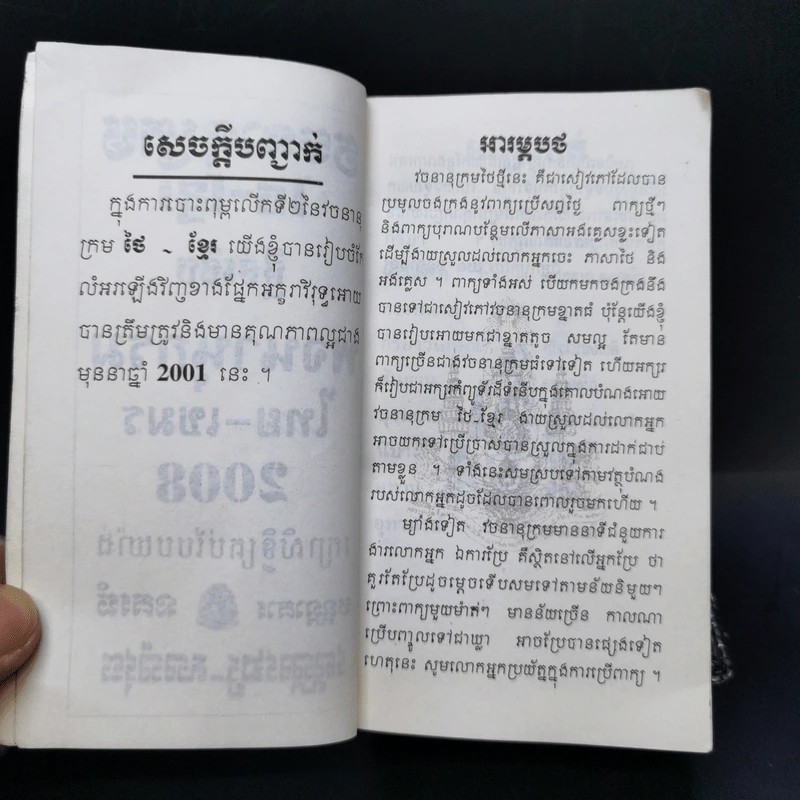 សេចក្តីបញ្ជាក់
ក្នុងការបោះពុម្ពលើកទី២នៃវចនានុ
ក្រម ថៃ ~ ខ្មែរ យើងខ្ញុំបានរៀបចំកែ
លំអរឡើងវិញខាងផ្នែកអក្ខរាវិរុទ្ធអោយ
បានត្រឹមត្រូវនិងមានគុណភាពល្អជាង
មុននាឆ្នាំ 2001 នេះ ។
អារម្ភបថ
វចនានុក្រមថៃថ្មីនេះ គឺជាសៀវភៅដែលបាន
ប្រមូលចងក្រងនូវពាក្យប្រើសព្វថ្ងៃ ពាក្យថ្មីៗ
និងពាក្យបុរាណបន្ថែមលើភាសាអង់គ្លេសខ្លះទៀត
ដើម្បីងាយស្រួលដល់លោកអ្នកចេះ ភាសាថៃ និង
អង់គ្លេស ។ ពាក្យទាំងអស់ បើយកមកចងក្រងនឹង
បានទៅជាសៀវភៅវចនានុក្រមខ្នាតធំ ប៉ុន្តែយើងខ្ញុំ
បានរៀបអោយមកជាខ្នាតតូច សមល្អ តែមាន
ពាក្យច្រើនជាងវចនានុក្រមធំទៅទៀត ហើយអក្សរ
ក៏រៀបជាអក្សរកំព្យូទ័រដ៏ទំនើបក្នុងគោលបំណងអោយ
វចនានុក្រម ថៃ-ខ្មែរ ងាយស្រួលដល់លោកអ្នក
អាចយកទៅប្រើប្រាស់បានស្រួលក្នុងការដាក់ជាប់
តាមខ្លួន ។ ទាំងនេះសមស្របទៅតាមវត្ថុបំណង
របស់លោកអ្នកដូចដែលបានពោលរួចមកហើយ ។
ម្យ៉ាងទៀត វចនានុក្រមមាននាទីជំនួយការ
ងារលោកអ្នក ឯការប្រែ គឺស្ថិតនៅលើអ្នកប្រែ ថា
គួរតែប្រែដូចម្តេចទើបសមទៅតាមន័យនិមួយៗ
ព្រោះពាក្យមួយម៉ាត់ៗ មានន័យច្រើន កាលណា
ប្រើបញ្ចូលទៅជាឃ្លា អាចប្រែបានផ្សេងទៀត
ហេតុនេះ សូមលោកអ្នកប្រយ័ត្នក្នុងការប្រើពាក្យ ។